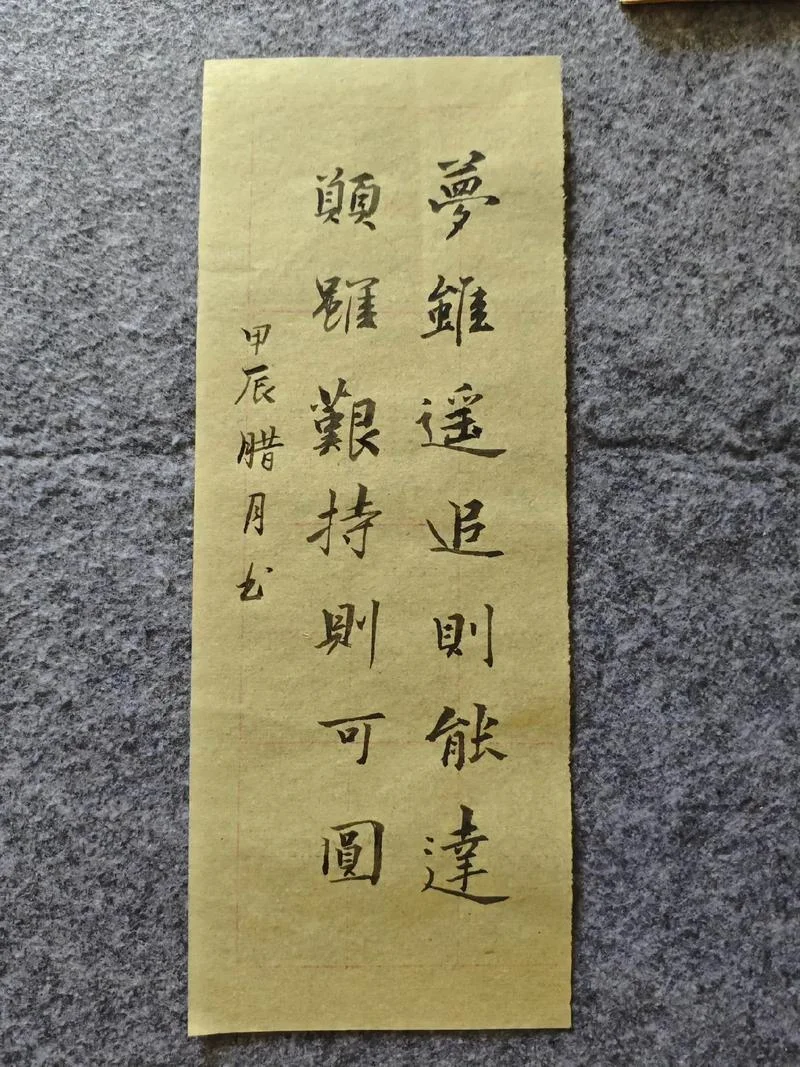 夢雖遥追則能達
願雖艱持則可圓
甲辰腊月书